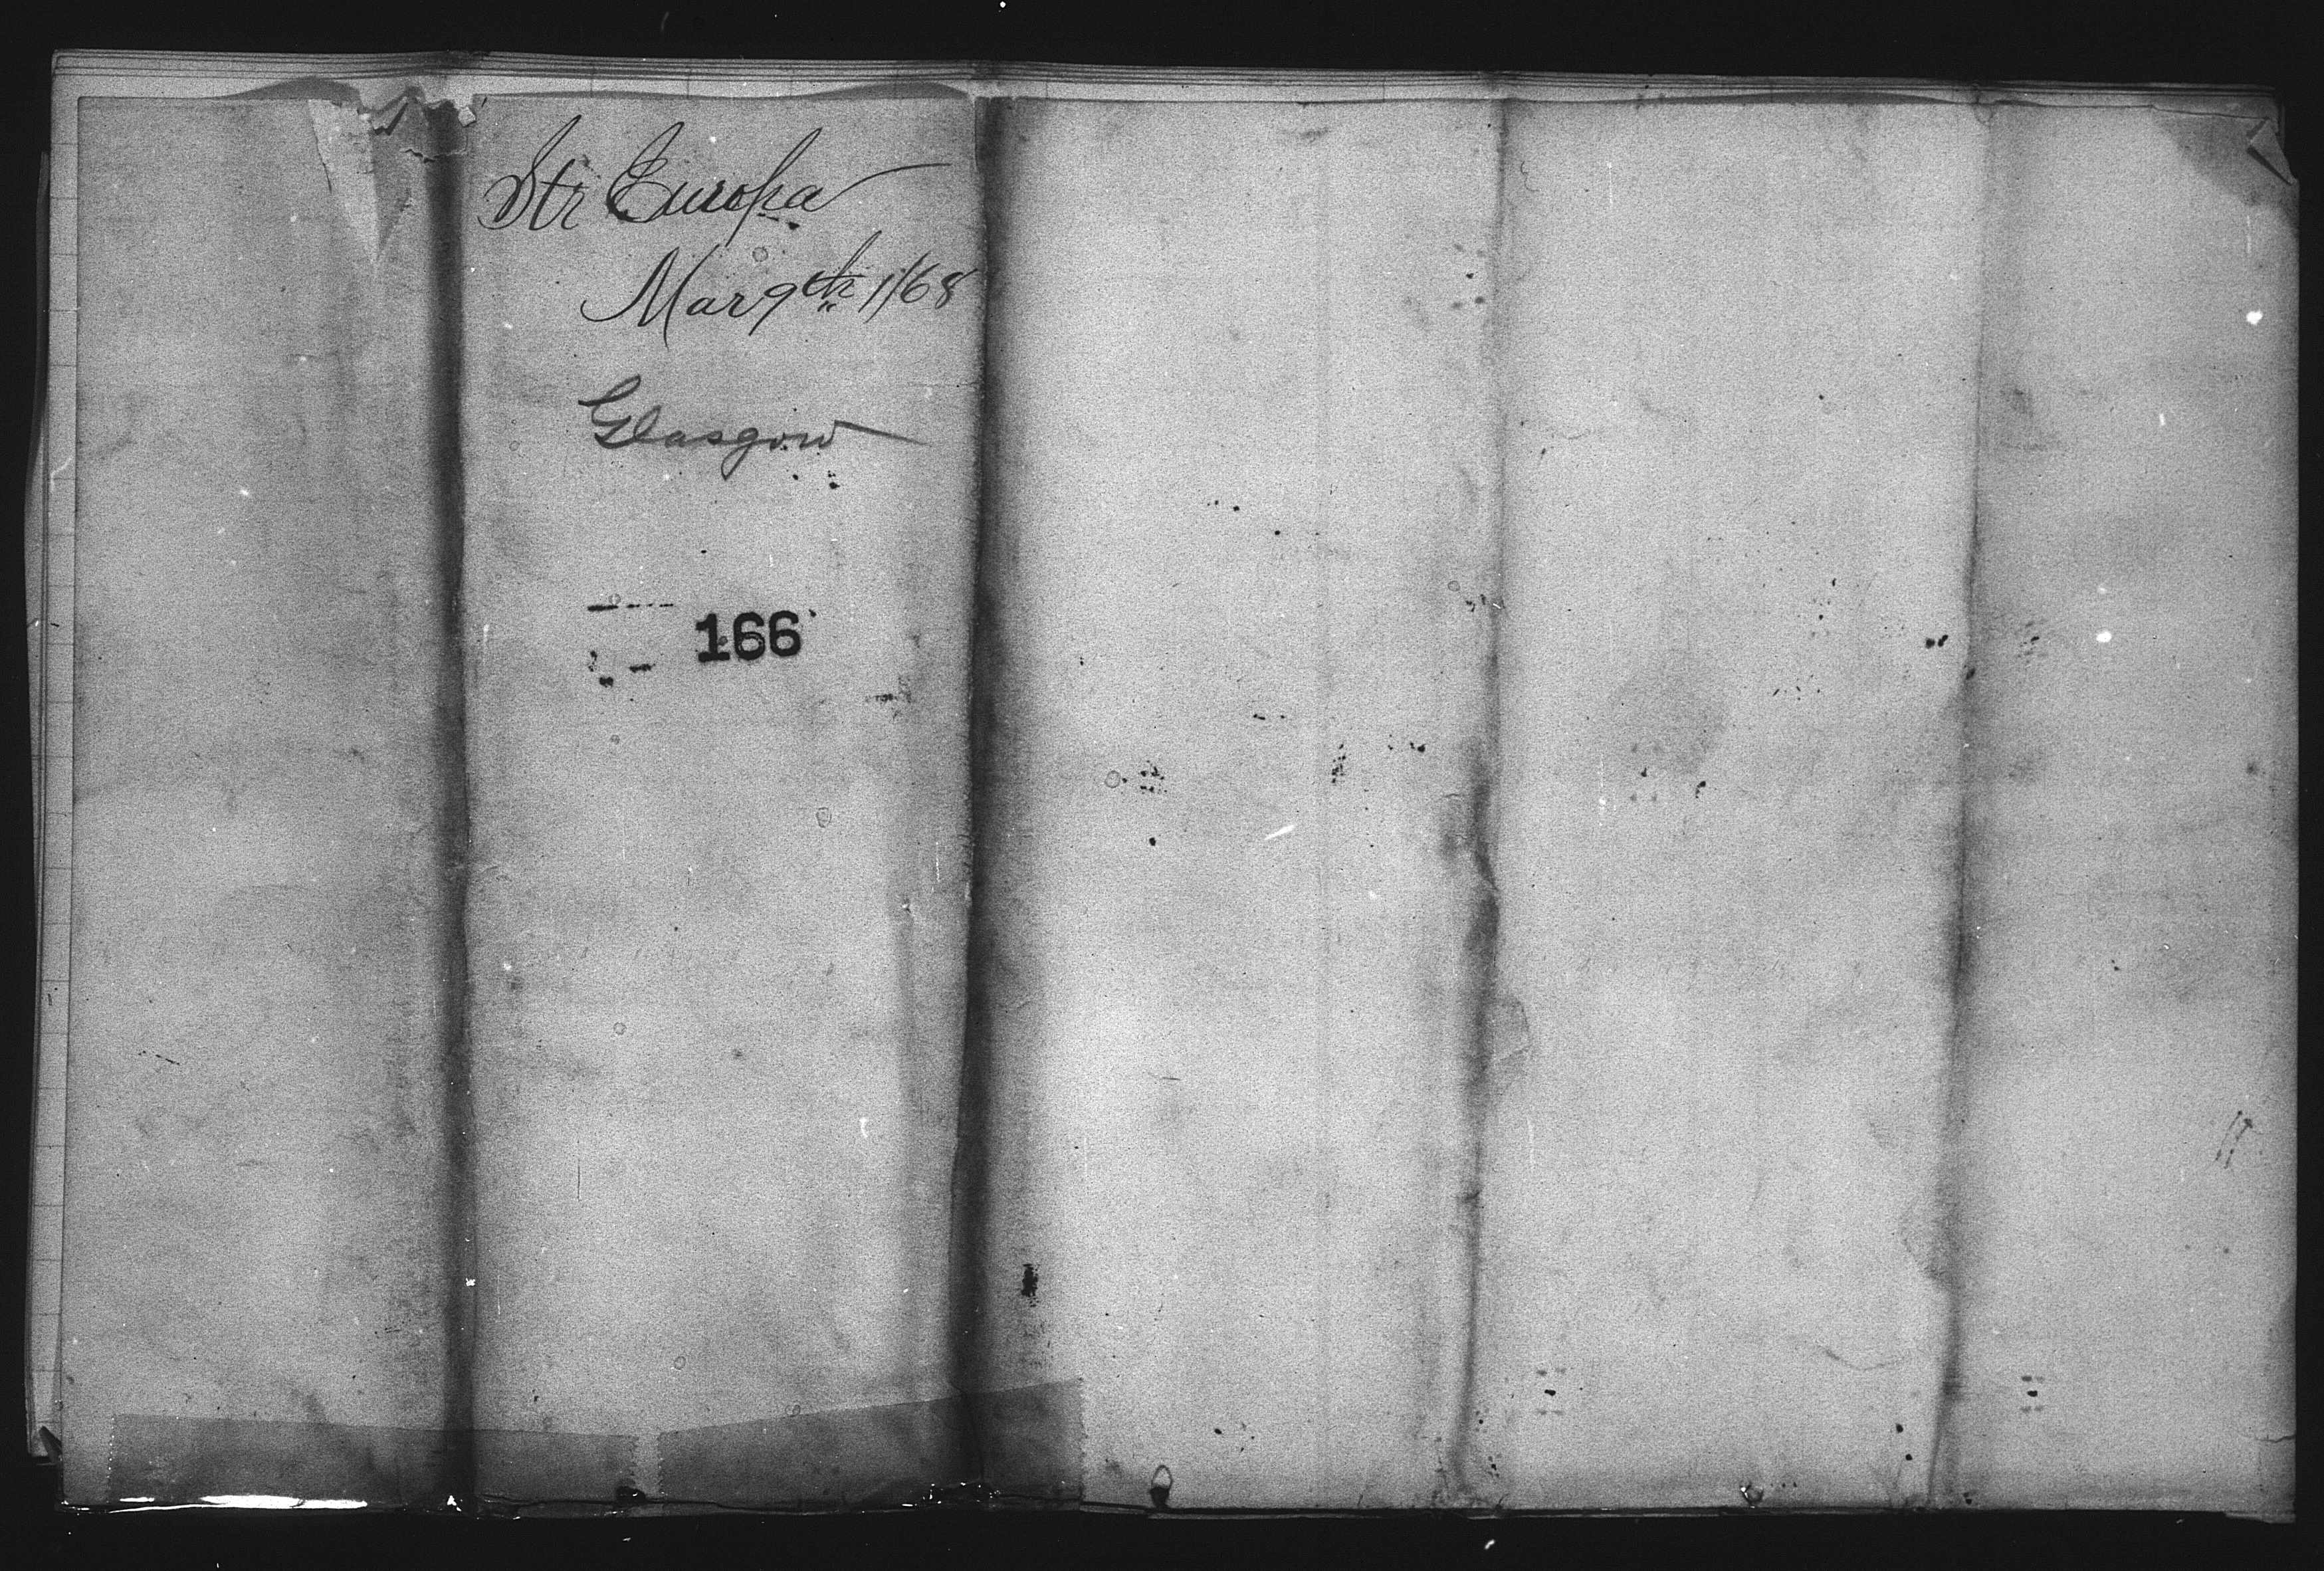 Str Europa
Mar 9th 1/68
Glasgow
166